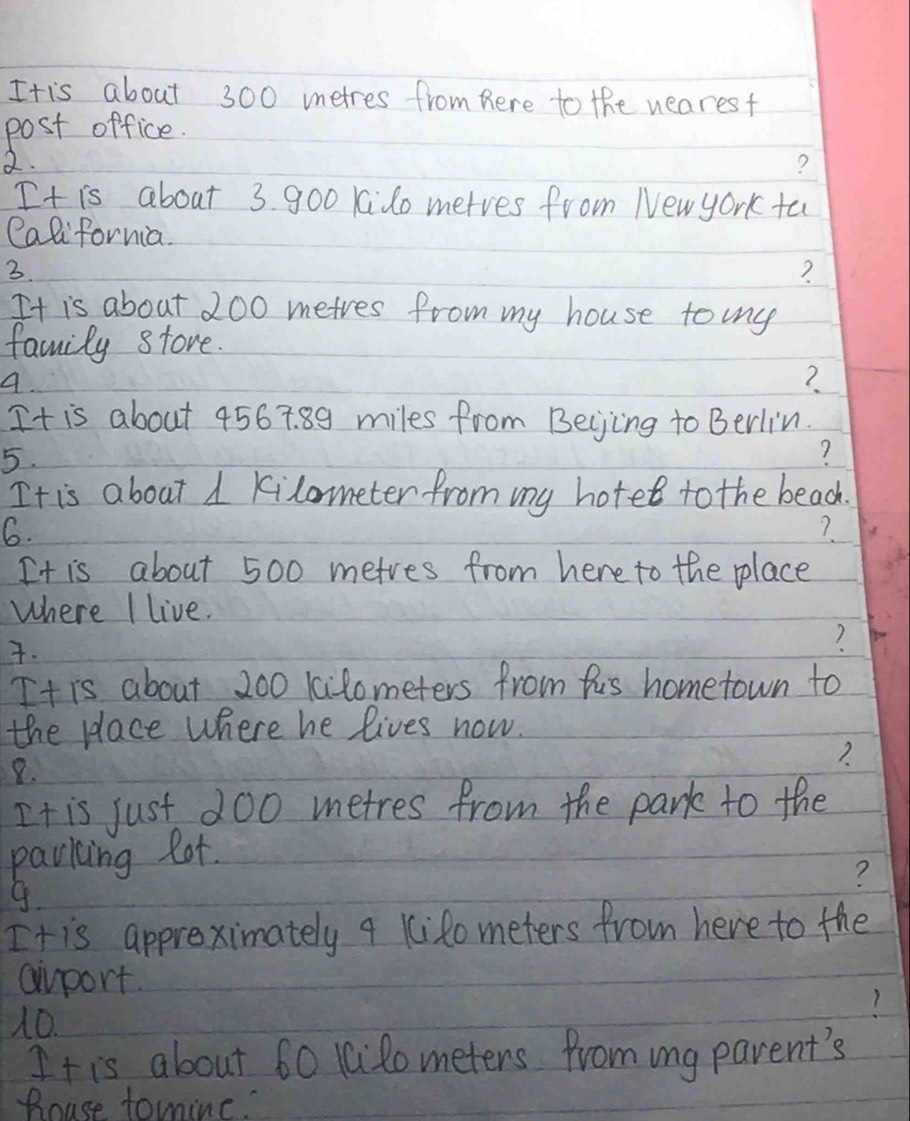 It is about 300 metres from here to the nearest
post office.
2. ?
It is about 3.900 kilo metres from New york to
California.
3. ?
It is about 200 metres from my house to my
family store.
4. ?
It is about 4567.89 miles from Beijing to Berlin.
5. ?
It is about 1 kilometer from my hotel to the beach.
6. ?
It is about 500 metres from here to the place
where I live.
7. ?
It is about 200 kilometers from his hometown to
the place where he lives now.
8. ?
It is just 200 metres from the park to the
parking lot.
9. ?
It is approximately 4 kilo meters from here to the
airport.
10. ?
It is about 60 kilo meters from my parent's
house to mine.